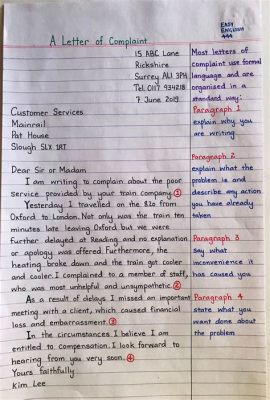 EASY
ENGLISH
A Letter of Complaint
15 ABC Lane
Rickshire
Surrey AL1 3PH
Tel. 0117 934218
7 June 2019
Customer Services
Mainrail
Pat House
Slough SLX 1RT
Dear Sir or Madam
I am writing to complain about the poor
service provided by your train company. 1
Yesterday I travelled on the 820 from
Oxford to London. Not only was the train ten
minutes late leaving Oxford but we were
further delayed at Reading and no explanation
or apology was offered. Furthermore, the
heating broke down and the train got cooler
and cooler. I complained to a member of staff,
who was most unhelpful and unsympathetic. 2
As a result of delays I missed an important
meeting with a client, which caused financial
loss and embarrassment. 3
In the circumstances I believe I am
entitled to compensation. I look forward to
hearing from you very soon. 4
Yours faithfully
Kim Lee
Most letters of
complaint use formal
language and are
organised in a
standard way:
Paragraph 1
explain why you
are writing.
Paragraph 2
explain what the
problem is and
describe any action
you have already
taken
Paragraph 3
say what
inconvenience it
has caused you
Paragraph 4
state what you
want done about
the problem